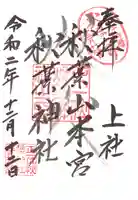 奉拝
上社
秋葉山本宮
秋葉神社
令和二年十二月十二日